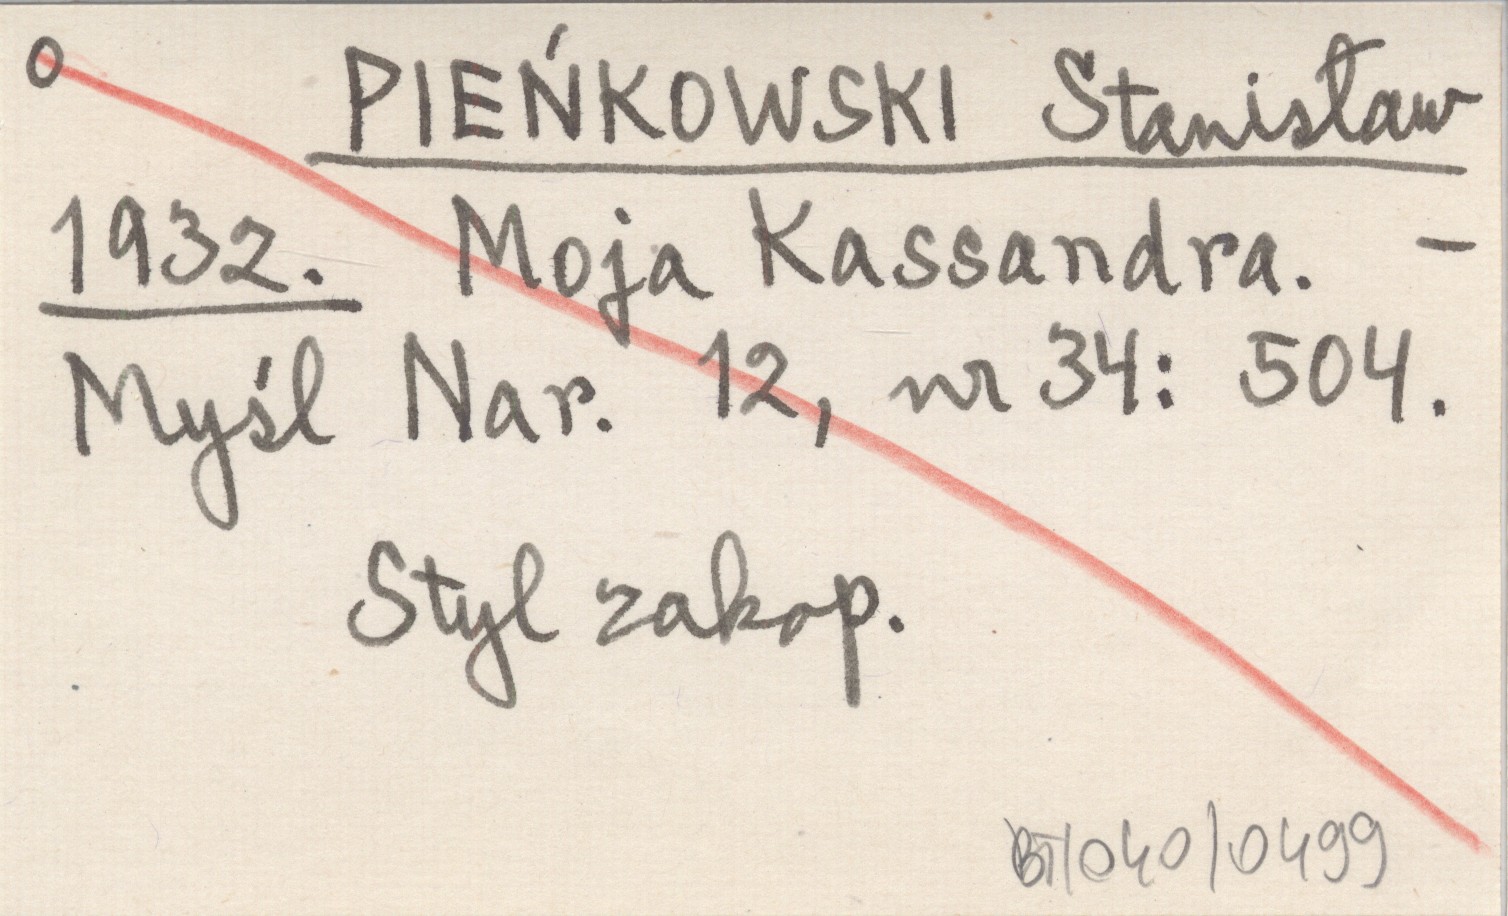 o PIEŃKOWSKI Stanisław
1932. Moja Kassandra. –
Myśl Nar. 12, nr 34: 504.
Styl zakop.
BT/040/0499